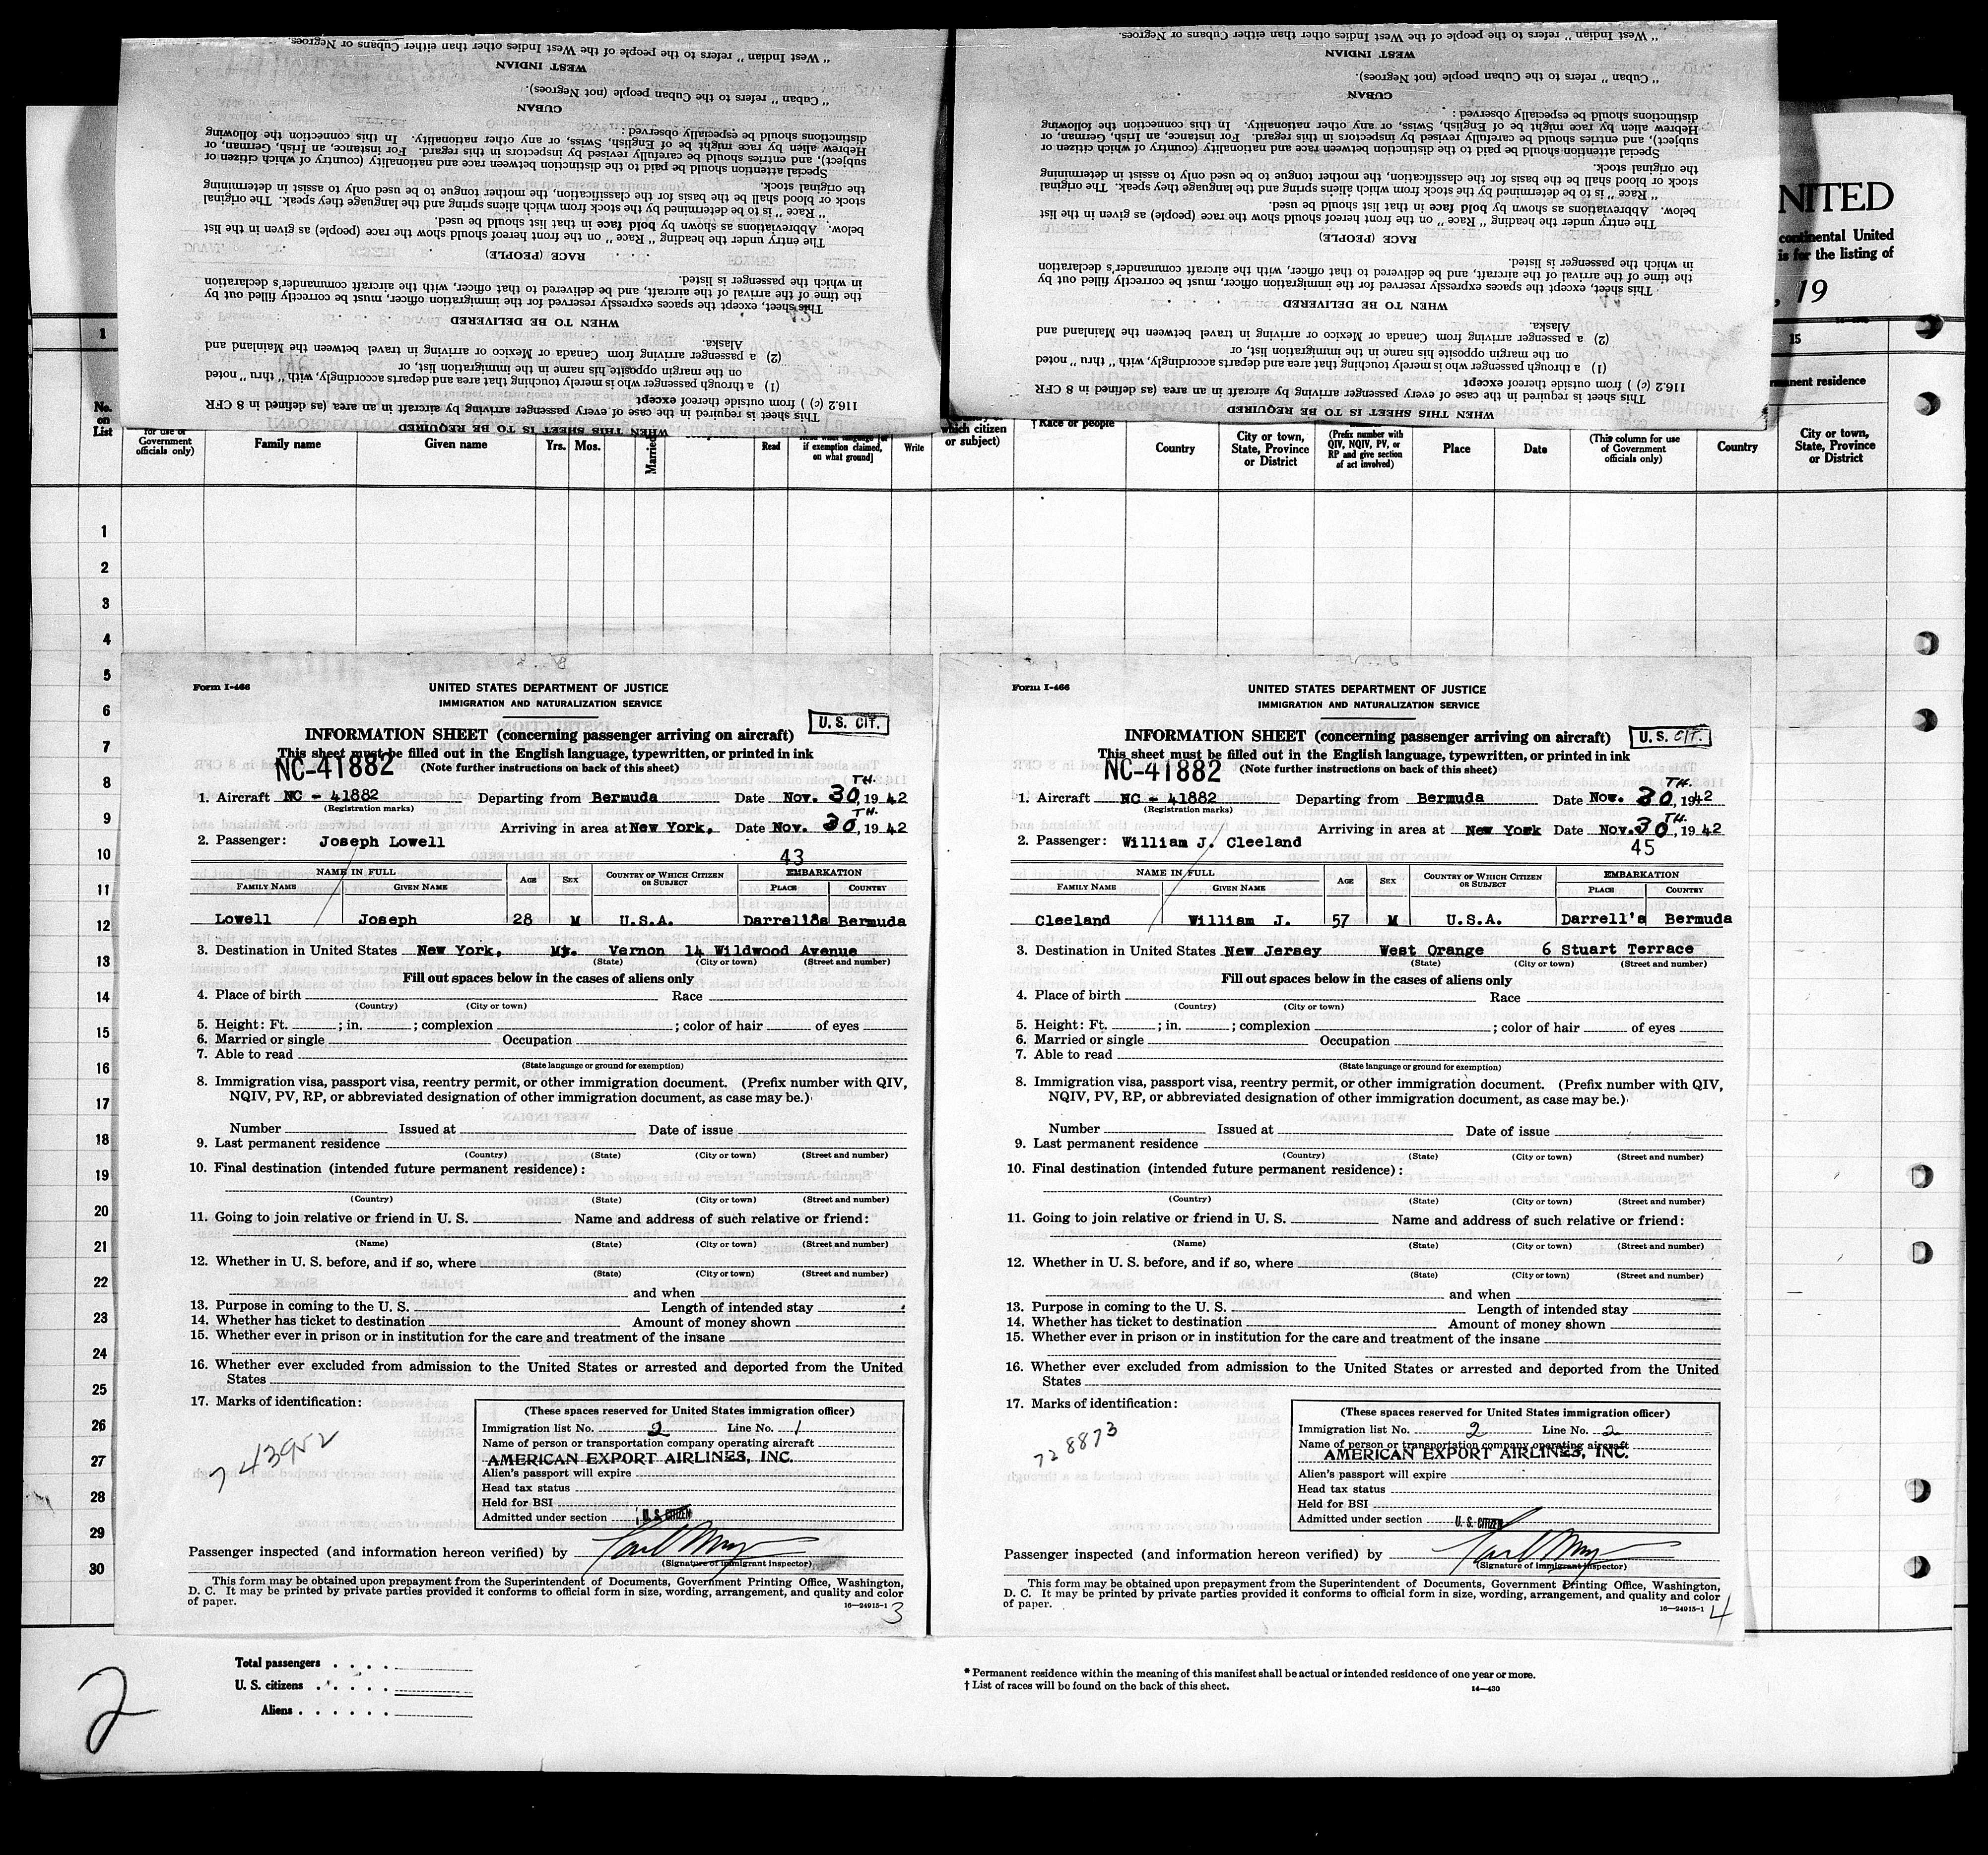 " West Indian " refers to the people of the West Indies other than either Cubans or Negroes.
WEST INDIAN
" Cuban " refers to the Cuban people (not Negroes).
CUBAN
distinctions should be especially observed :
Hebrew alien by race might be of English, Swiss, or any other nationality. In this connection the following
subject), and entries should be carefully revised by inspectors in this regard. For instance, an Irish, German, or
Special attention should be paid to the distinction between race and nationality (country of which citizen or
the original stock.
stock or blood shall be the basis for the classification, the mother tongue to be used only to assist in determining
" Race " is to be determined by the stock from which aliens spring and the language they speak. The original
below. Abbreviations as shown by bold face in that list should be used.
The entry under the heading " Race " on the front hereof should show the race (people) as given in the list
RACE (PEOPLE)
in which the passenger is listed.
the time of the arrival of the aircraft, and be delivered to that officer, with the aircraft commander's declaration
This sheet, except the spaces expressly reserved for the immigration officer, must be correctly filled out by
WHEN TO BE DELIVERED
Alaska.
(2) a passenger arriving from Canada or Mexico or arriving in travel between the Mainland and
on the margin opposite his name in the immigration list, or
(1) a through passenger who is merely touching that area and departs accordingly, with " thru " noted
116.2 (c) ) from outside thereof except
This sheet is required in the case of every passenger arriving by aircraft in an area (as defined in 8 CFR
WHEN THIS SHEET IS TO BE REQUIRED
" West Indian " refers to the people of the West Indies other than either Cubans or Negroes.
WEST INDIAN
" Cuban " refers to the Cuban people (not Negroes).
CUBAN
distinctions should be especially observed :
Hebrew alien by race might be of English, Swiss, or any other nationality. In this connection the following
subject), and entries should be carefully revised by inspectors in this regard. For instance, an Irish, German, or
Special attention should be paid to the distinction between race and nationality (country of which citizen or
the original stock.
stock or blood shall be the basis for the classification, the mother tongue to be used only to assist in determining
" Race " is to be determined by the stock from which aliens spring and the language they speak. The original
below. Abbreviations as shown by bold face in that list should be used.
The entry under the heading " Race " on the front hereof should show the race (people) as given in the list
RACE (PEOPLE)
in which the passenger is listed.
the time of the arrival of the aircraft, and be delivered to that officer, with the aircraft commander's declaration
This sheet, except the spaces expressly reserved for the immigration officer, must be correctly filled out by
WHEN TO BE DELIVERED
Alaska.
(2) a passenger arriving from Canada or Mexico or arriving in travel between the Mainland and
on the margin opposite his name in the immigration list, or
(1) a through passenger who is merely touching that area and departs accordingly, with " thru " noted
116.2 (c) ) from outside thereof except
This sheet is required in the case of every passenger arriving by aircraft in an area (as defined in 8 CFR
WHEN THIS SHEET IS TO BE REQUIRED
NITED
continental United
is for the listing of
, 19
1
15
permanent residence
No. on List
for use of Government officials only)
Family name
Given name
Yrs.
Mos.
Married
Read
if exemption claimed, on what ground]
Write
which citizen or subject)
† Race or people
Country
City or town, State, Province or District
(Prefix number with QIV, NQIV, PV, or RP and give section of act involved)
Place
Date
(This column for use of Government officials only)
Country
City or town, State, Province or District
1
2
3
4
5
6
7
8
9
10
11
12
13
14
15
16
17
18
19
20
21
22
23
24
25
26
27
28
29
30
Form I-466
UNITED STATES DEPARTMENT OF JUSTICE
IMMIGRATION AND NATURALIZATION SERVICE
U. S. CIT.
INFORMATION SHEET (concerning passenger arriving on aircraft)
This sheet must be filled out in the English language, typewritten, or printed in ink
NC-41882
(Note further instructions on back of this sheet)
1. Aircraft NC - 41882 Departing from Bermuda Date Nov. 30TH., 1942
(Registration marks)
Arriving in area at New York, Date Nov. 30TH., 1942
2. Passenger: Joseph Lowell
43
NAME IN FULL
FAMILY NAME GIVEN NAME AGE SEX COUNTRY OF WHICH CITIZEN OR SUBJECT EMBARKATION PLACE COUNTRY
Lowell Joseph 28 M U.S.A. Darrell's Bermuda
3. Destination in United States New York, Mt. Vernon 14 Wildwood Avenue
(State) (City or town) (Street and number)
Fill out spaces below in the cases of aliens only
4. Place of birth Race
(Country) (City or town)
5. Height: Ft. ; in. ; complexion ; color of hair of eyes
6. Married or single Occupation
7. Able to read
(State language or ground for exemption)
8. Immigration visa, passport visa, reentry permit, or other immigration document. (Prefix number with QIV,
NQIV, PV, RP, or abbreviated designation of other immigration document, as case may be.)
Number Issued at Date of issue
9. Last permanent residence
(Country) (State) (City or town) (Street and number)
10. Final destination (intended future permanent residence):
(Country) (State) (City or town) (Street and number)
11. Going to join relative or friend in U. S. Name and address of such relative or friend:
(Name) (State) (City or town) (Street and number)
12. Whether in U. S. before, and if so, where
(State) (City or town) (Street and number)
and when
13. Purpose in coming to the U. S. Length of intended stay
14. Whether has ticket to destination Amount of money shown
15. Whether ever in prison or in institution for the care and treatment of the insane
16. Whether ever excluded from admission to the United States or arrested and deported from the United
States
17. Marks of identification:
743952
(These spaces reserved for United States immigration officer)
Immigration list No. 2 Line No. 1
Name of person or transportation company operating aircraft
AMERICAN EXPORT AIRLINES, INC.
Alien's passport will expire
Head tax status
Held for BSI
Admitted under section U. S. CITIZEN
Passenger inspected (and information hereon verified) by
(Signature of immigrant inspector)
This form may be obtained upon prepayment from the Superintendent of Documents, Government Printing Office, Washington,
D. C. It may be printed by private parties provided it conforms to official form in size, wording, arrangement, and quality and color
of paper.
16—24915-1
3
Form I-466
UNITED STATES DEPARTMENT OF JUSTICE
IMMIGRATION AND NATURALIZATION SERVICE
U. S. CIT.
INFORMATION SHEET (concerning passenger arriving on aircraft)
This sheet must be filled out in the English language, typewritten, or printed in ink
NC-41882
(Note further instructions on back of this sheet)
1. Aircraft NC - 41882 Departing from Bermuda Date Nov. 30TH., 1942
(Registration marks)
Arriving in area at New York Date Nov. 30TH., 1942
2. Passenger: William J. Cleeland
45
NAME IN FULL
FAMILY NAME GIVEN NAME AGE SEX COUNTRY OF WHICH CITIZEN OR SUBJECT EMBARKATION PLACE COUNTRY
Cleeland William J. 57 M U.S.A. Darrell's Bermuda
3. Destination in United States New Jersey West Orange 6 Stuart Terrace
(State) (City or town) (Street and number)
Fill out spaces below in the cases of aliens only
4. Place of birth Race
(Country) (City or town)
5. Height: Ft. ; in. ; complexion ; color of hair of eyes
6. Married or single Occupation
7. Able to read
(State language or ground for exemption)
8. Immigration visa, passport visa, reentry permit, or other immigration document. (Prefix number with QIV,
NQIV, PV, RP, or abbreviated designation of other immigration document, as case may be.)
Number Issued at Date of issue
9. Last permanent residence
(Country) (State) (City or town) (Street and number)
10. Final destination (intended future permanent residence):
(Country) (State) (City or town) (Street and number)
11. Going to join relative or friend in U. S. Name and address of such relative or friend:
(Name) (State) (City or town) (Street and number)
12. Whether in U. S. before, and if so, where
(State) (City or town) (Street and number)
and when
13. Purpose in coming to the U. S. Length of intended stay
14. Whether has ticket to destination Amount of money shown
15. Whether ever in prison or in institution for the care and treatment of the insane
16. Whether ever excluded from admission to the United States or arrested and deported from the United
States
17. Marks of identification:
728873
(These spaces reserved for United States immigration officer)
Immigration list No. 2 Line No. 2
Name of person or transportation company operating aircraft
AMERICAN EXPORT AIRLINES, INC.
Alien's passport will expire
Head tax status
Held for BSI
Admitted under section U. S. CITIZEN
Passenger inspected (and information hereon verified) by
(Signature of immigrant inspector)
This form may be obtained upon prepayment from the Superintendent of Documents, Government Printing Office, Washington,
D. C. It may be printed by private parties provided it conforms to official form in size, wording, arrangement, and quality and color
of paper.
16—24915-1
4
Total passengers
U. S. citizens
Aliens
2
* Permanent residence within the meaning of this manifest shall be actual or intended residence of one year or more.
† List of races will be found on the back of this sheet.
14—430